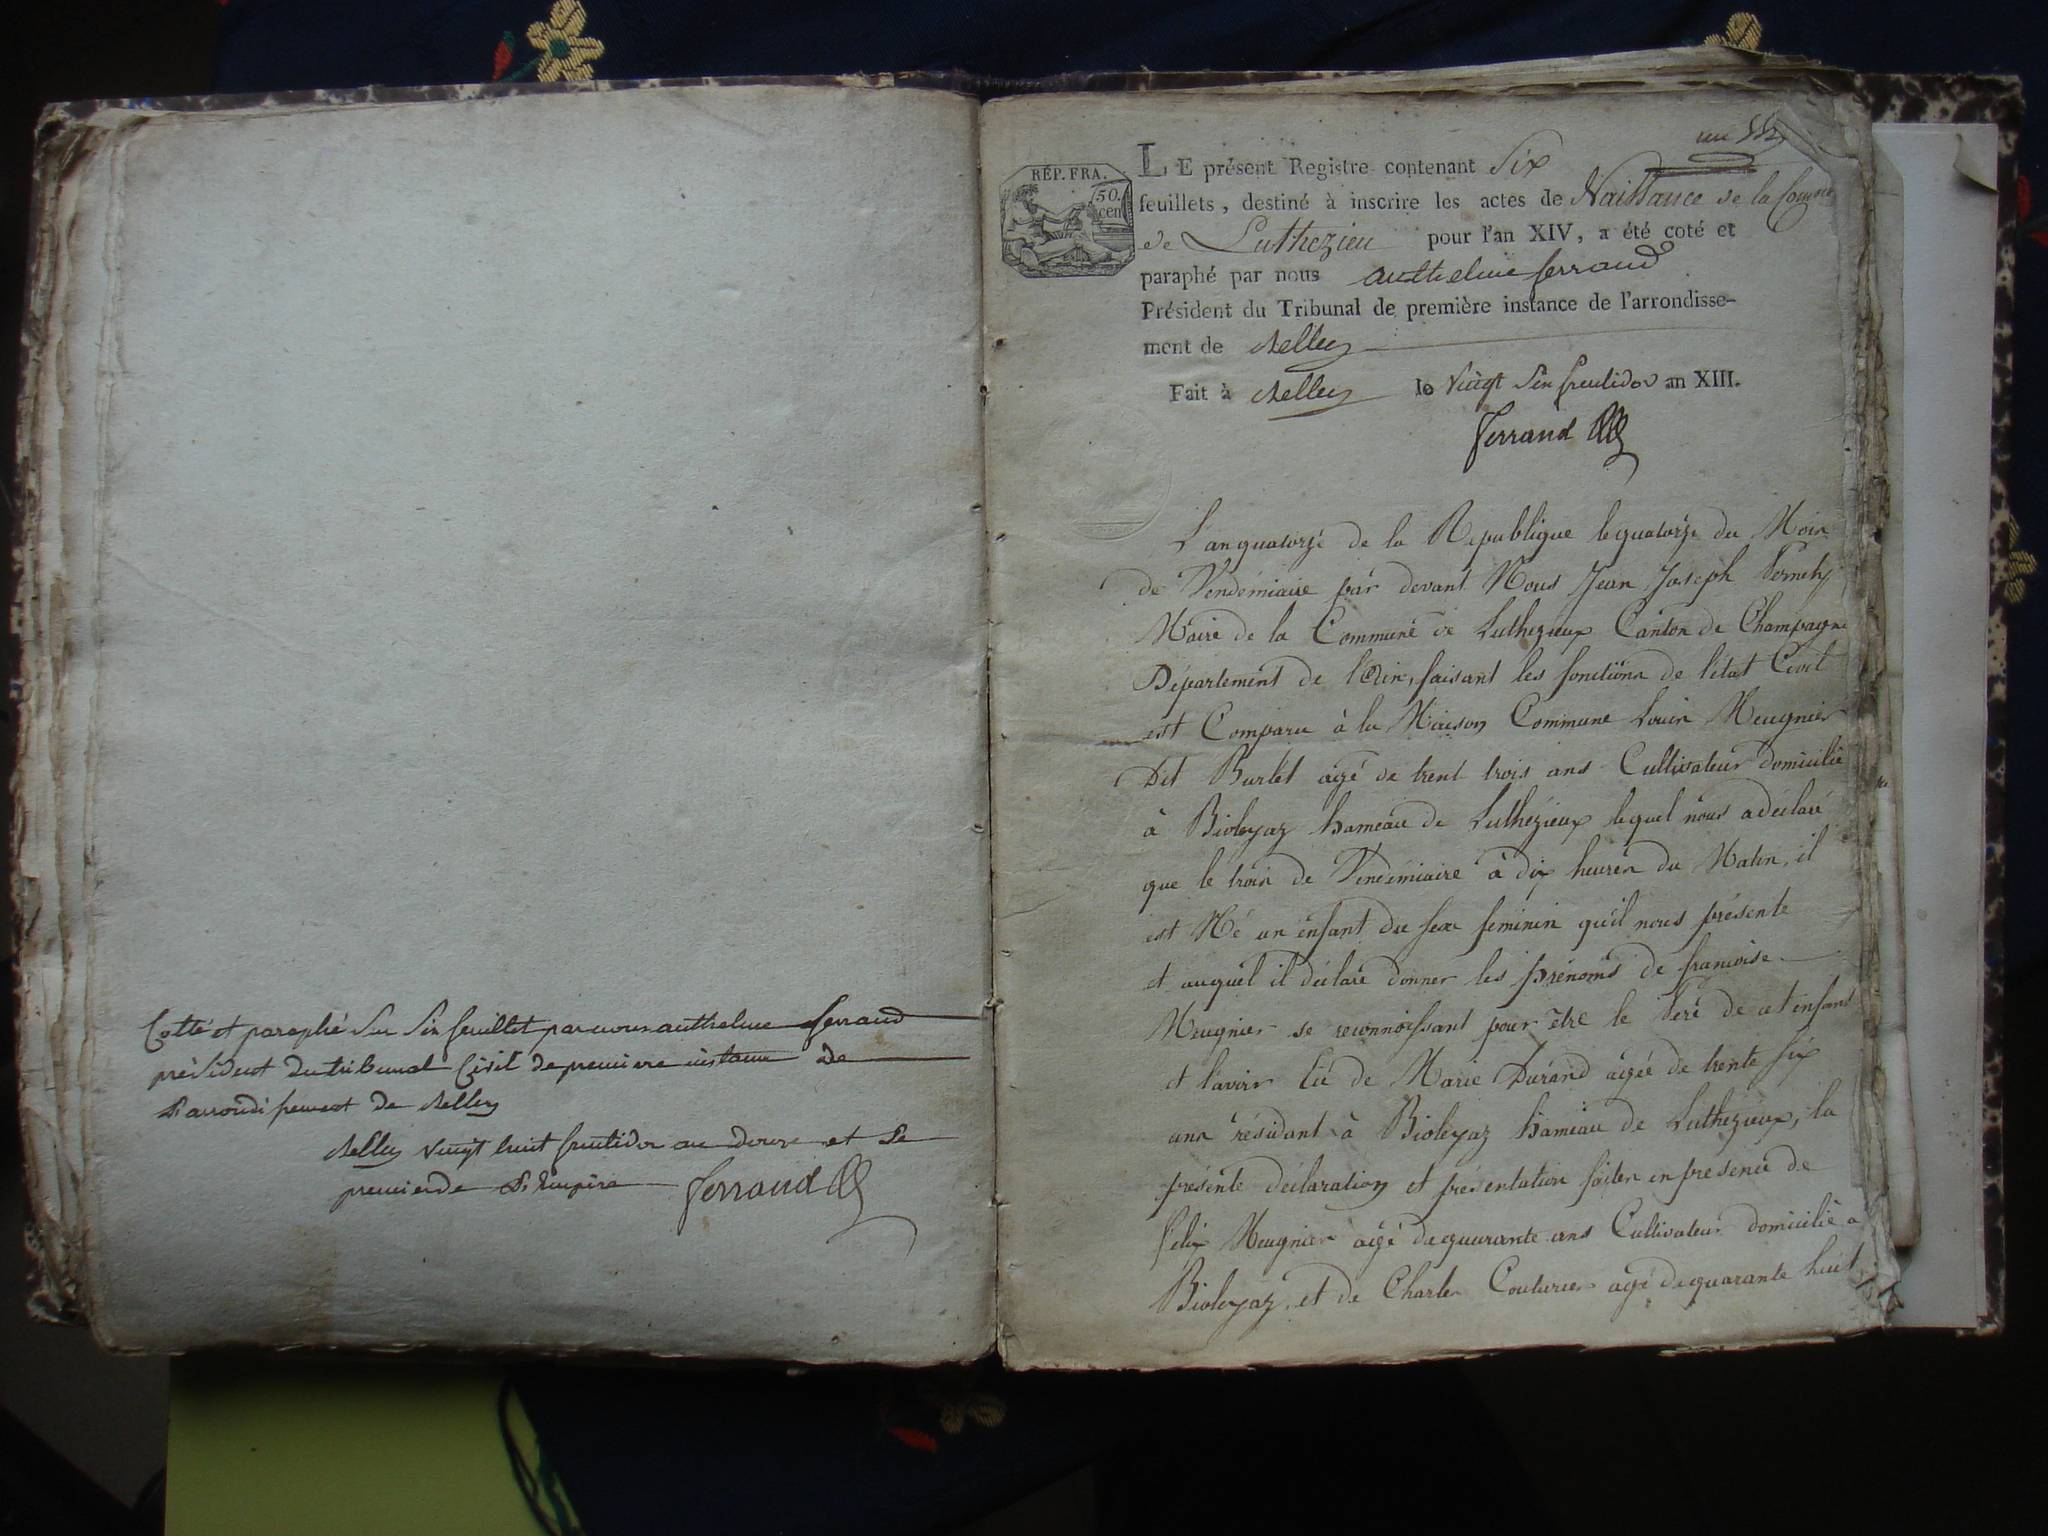 Cotté et paraphé Sur Six feuillet par nous anthelme ferrand
président du tribunal Civil de premiere instance de
L'arrondissement de Belley
Belley vingt huit fructidor an douze et Le
premier de L'Empire Ferrand
RÉP. FRA.
50.
cen
un
LE présent Registre contenant Six
feuillets, destiné à inscrire les actes de Naissance de la Commune
de Luthezieu pour l'an XIV, a été coté et
paraphé par nous anthelme ferrand
Président du Tribunal de première instance de l'arrondisse-
ment de Belley
Fait à Belley le vingt Six fructidor an XIII.
Ferrand
L'an quatorze de la Republique le quatorze du Mois
de Vendémiaire par devant Nous Jean Joseph
Maire de la Commune de Luthezieux Canton de Champagne
Département de l'Ain, faisant les fonctions de l'état Civil
est Comparu à la Maison Commune Louis Meugnier
Dit Burlet agé de trent trois ans Cultivateur domicilié
à Bioleyaz hameau de Luthézieux lequel nous a déclaré
que le trois de Vendémiaire à dix heures du Matin, il
est Né un enfant du sexe feminin qu'il nous présente
et auquel il déclare donner les prénoms de francoise
Meugnier se reconnoissant pour être le Père de cet enfant
et l'avoir Eu de Marie Durand agée de trente six
ans résidant à Bioleyaz hameau de Luthezieux, la
présente déclaration et présentation faites en presence de
felix Meugnier agé de quarante ans Cultivateur domicilié a
Bioleyaz, et de Charles Couturier agé de quarante huit